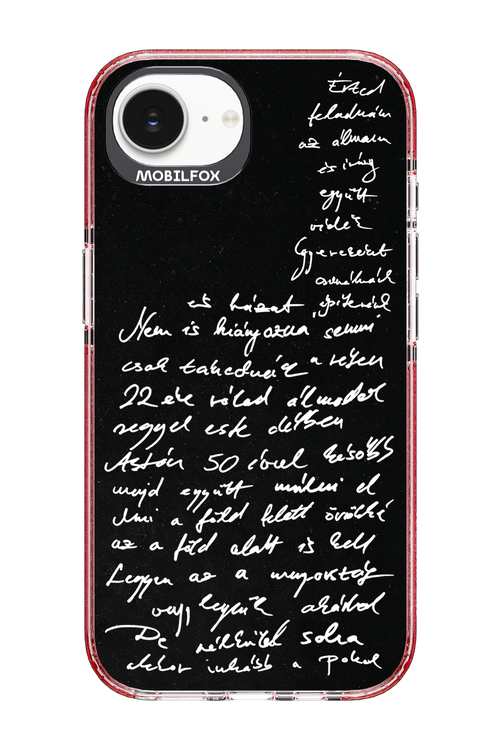 MOBILFOX
Érted
feladnám
az álmaim
és így
együtt
Gyereket
csinálnánk
és házat építenénk
Nem is hiányozna semmi
csak takednék a réten
22 éve rólad álmodok
reggel este délben
Aztán 50 évvel később
majd együtt múlni el
Ami a föld felett örökké
az a föld alatt is kell
Legyen az a mennyország
vagy legyünk akárhol
De nélküled soha
akkor inkább a pokol